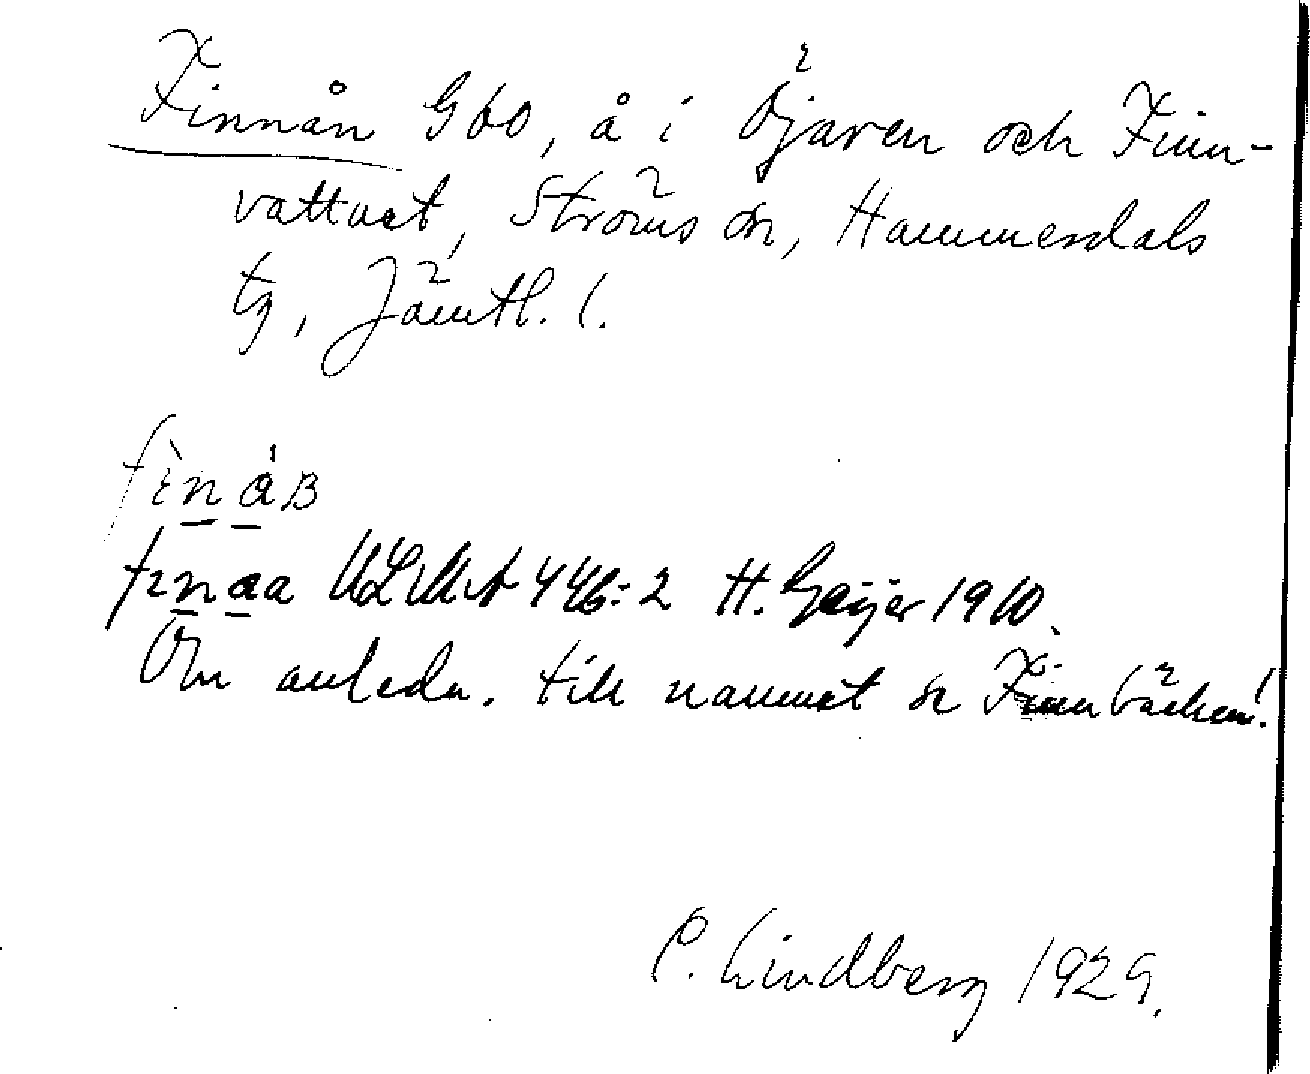 Finnån Gbo, å i Öjaren och Finn-
vattnet, Ströms sn, Hammerdals
tg, Jämtl. l.
fɪ̀náʙ
fɪnaa ULMA 446:2 H. Geijer 1910.
Om anledn. till namnet se Finnbäcken!
P. Lindberg 1929.